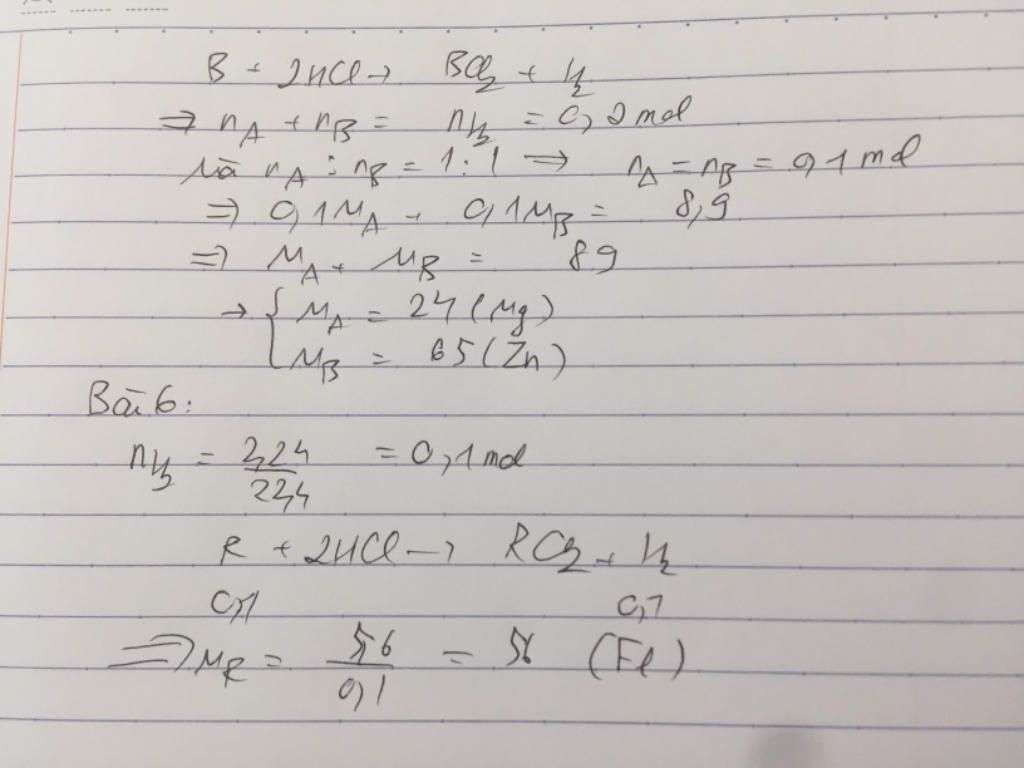 B + 2HCl → BCl₂ + H₂
⇒ nA + nB = nH₂ = 0,2 mol
Mà nA : nB = 1 : 1 ⇒ nA = nB = 0,1 mol
⇒ 0,1MA + 0,1MB = 8,9
⇒ MA + MB = 89
→ { MA = 24 (Mg)
MB = 65 (Zn)
Bài 6:
nH₂ = 2,24 / 22,4 = 0,1 mol
R + 2HCl → RCl₂ + H₂
0,1 0,1
⇒ MR = 5,6 / 0,1 = 56 (Fe)